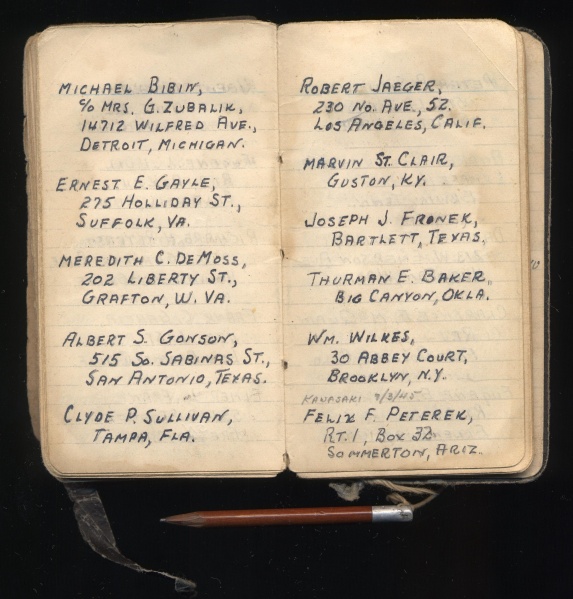 MICHAEL BIBIN,
c/o MRS. G. ZUBALIK,
14712 WILFRED AVE.,
DETROIT, MICHIGAN.
ERNEST E. GAYLE,
275 HOLLIDAY ST.,
SUFFOLK, VA.
MEREDITH C. DEMOSS,
202 LIBERTY ST.,
GRAFTON, W. VA.
ALBERT S. GONSON,
515 SO. SABINAS ST.,
SAN ANTONIO, TEXAS.
CLYDE P. SULLIVAN,
TAMPA, FLA.
ROBERT JAEGER,
230 NO. AVE., 52.
LOS ANGELES, CALIF.
MARVIN ST. CLAIR,
GUSTON, KY.
JOSEPH J. FRONEK,
BARTLETT, TEXAS.
THURMAN E. BAKER,
BIG CANYON, OKLA.
WM. WILKES,
30 ABBEY COURT,
BROOKLYN, N.Y.
KAWASAKI 9/3/45
FELIX F. PETEREK,
RT. 1, BOX 32
SOMMERTON, ARIZ.